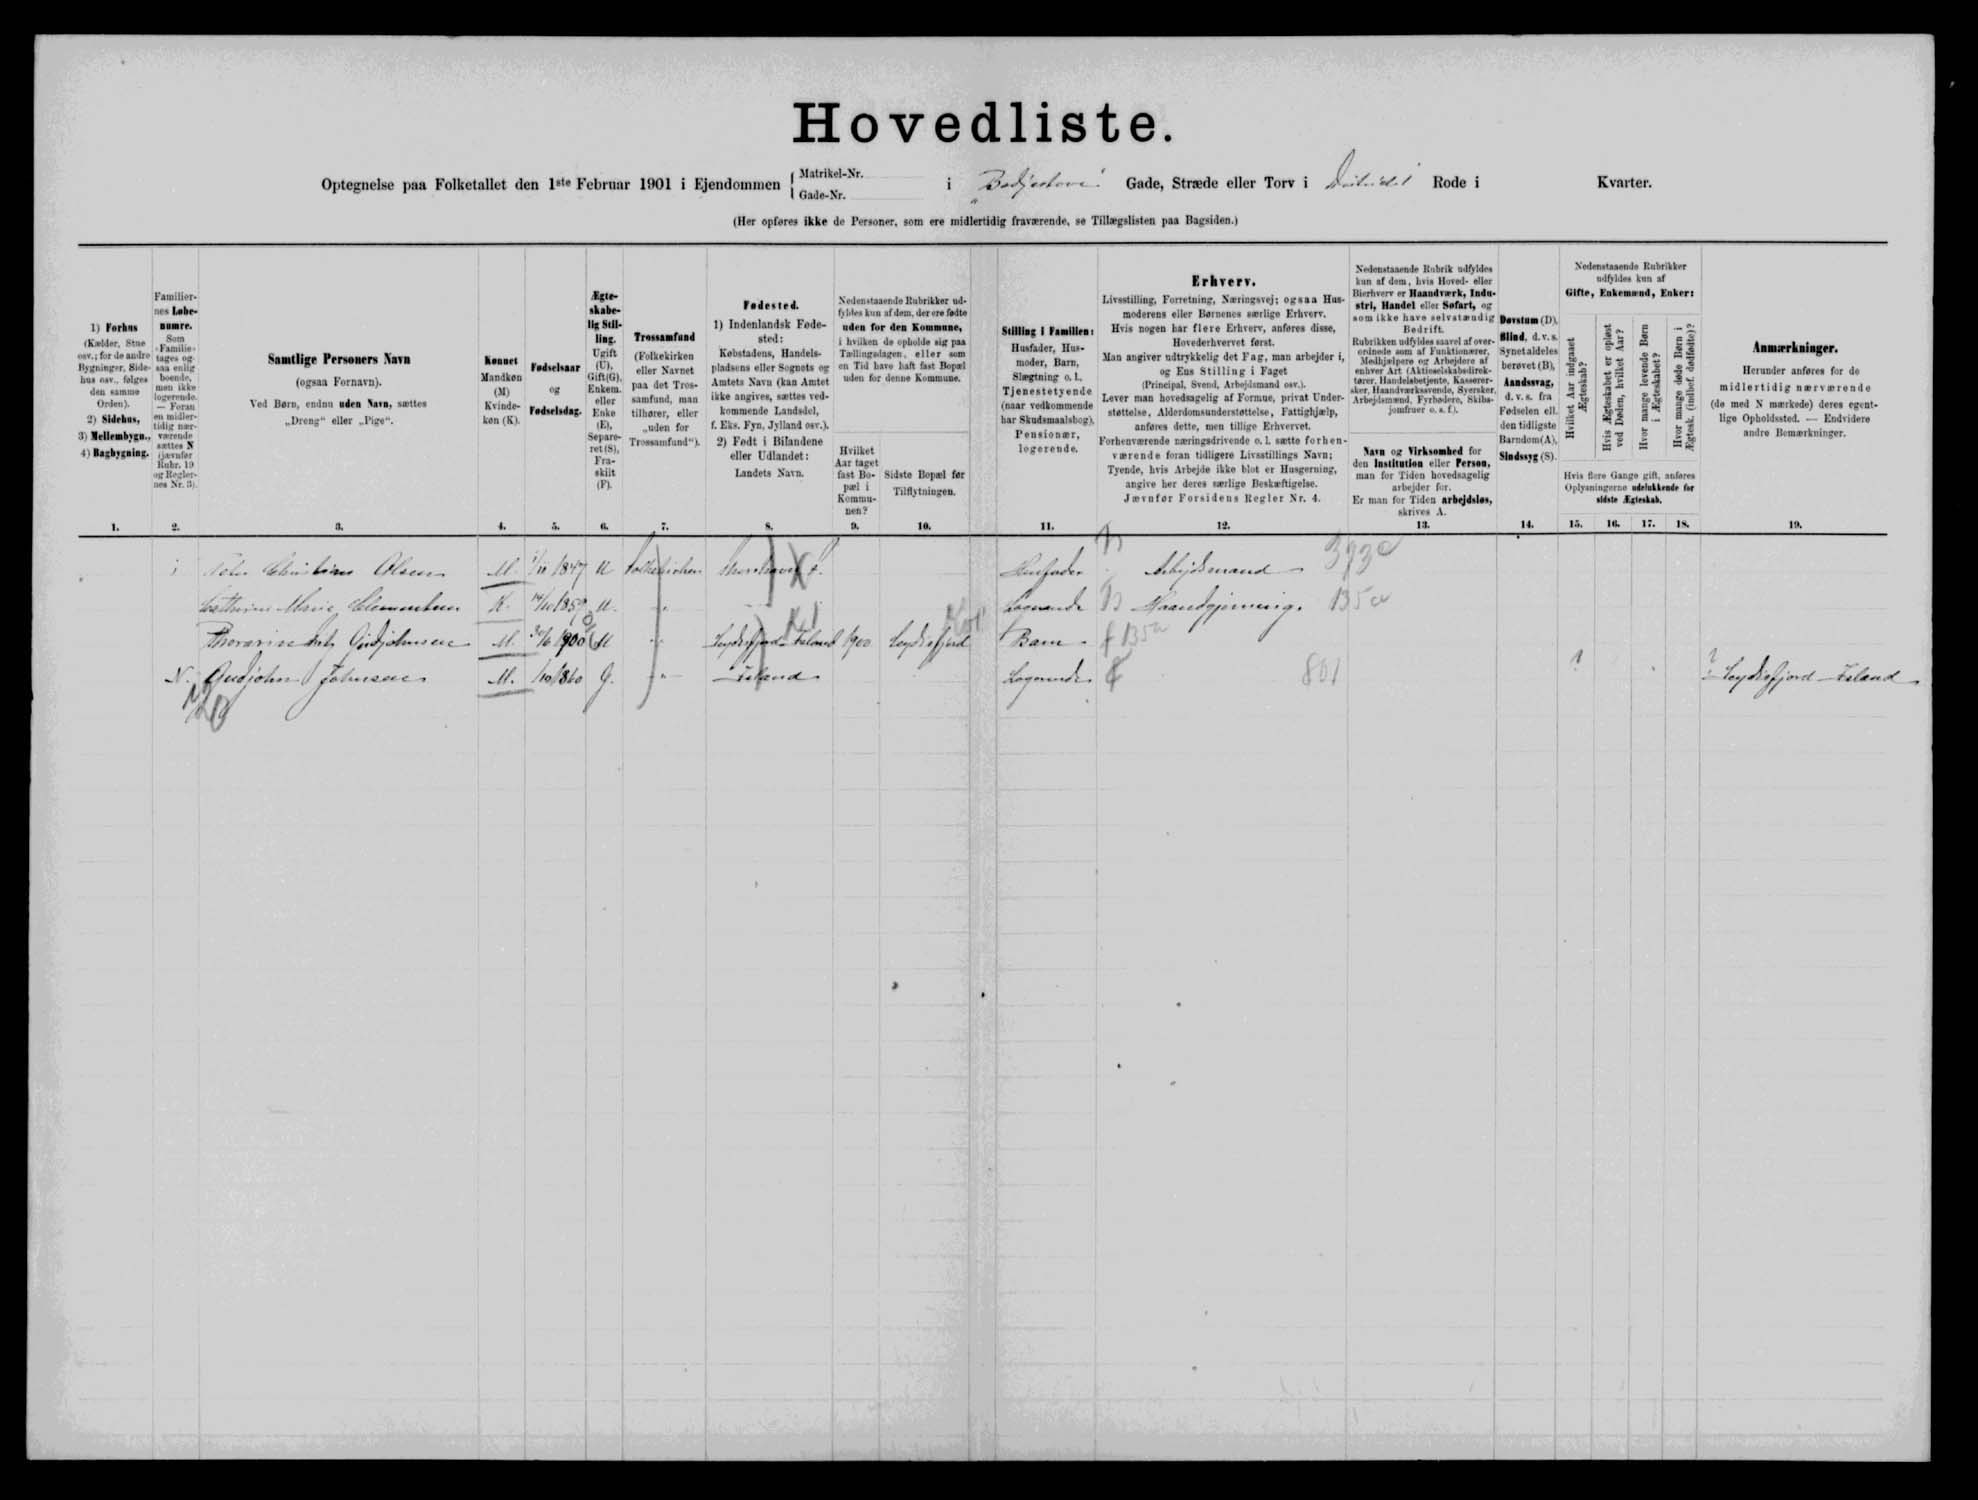 Hovedliste.
Optegnelse paa Folketallet den 1ste Februar 1901 i Ejendommen { Matrikel-Nr. Gade-Nr. i Gade, Stræde eller Torv i Rode i Kvarter.
(Her opføres ikke de Personer, som ere midlertidig fraværende, se Tillægslisten paa Bagsiden.)
1) Forhus
(Kælder, Stue
osv.; for de andre
Bygninger, Side-
hus osv., følges
den samme
Orden).
2) Sidehus,
3) Mellembygn.,
4) Bagbygning.
1.
Familier-
nes Løbe-
numre.
Som
Familie
tages og-
saa enlig
boende,
men ikke
logerende.
— Foran
en midler-
tidig nær-
værende
sættes N
(jævnfør
Rubr. 19
og Regler-
nes Nr. 3).
2.
Samtlige Personers Navn
(ogsaa Fornavn).
Ved Børn, endnu uden Navn, sættes
„Dreng“ eller „Pige“.
3.
Kønnet
Mandkøn
(M)
Kvinde-
køn (K).
4.
Fødselsaar
og
Fødselsdag.
5.
Ægte-
skabe-
lig Stil-
ling.
Ugift
(U),
Gift(G),
Enkem.
eller
Enke
(E),
Separe-
ret (S),
Fra-
skilt
(F).
6.
Trossamfund
(Folkekirken
eller Navnet
paa det Tros-
samfund, man
tilhører, eller
„uden for
Trossamfund“).
7.
Fødested.
1) Indenlandsk Føde-
sted:
Købstadens, Handels-
pladsens eller Sognets og
Amtets Navn (kan Amtet
ikke angives, sættes ved-
kommende Landsdel,
f. Eks. Fyn, Jylland osv.).
2) Født i Bilandene
eller Udlandet:
Landets Navn.
8.
Nedenstaaende Rubrikker ud-
fyldes kun af dem, der ere fødte
uden for den Kommune,
i hvilken de opholde sig paa
Tællingsdagen, eller som
en Tid have haft fast Bopæl
uden for denne Kommune.
Hvilket
Aar taget
fast Bo-
pæl i
Kommu-
nen?
9.
Sidste Bopæl før
Tilflytningen.
10.
Stilling i Familien:
Husfader, Hus-
moder, Barn,
Slægtning o. l.
Tjenestetyende
(naar vedkommende
har Skudsmaalsbog),
Pensionær,
logerende.
11.
Erhverv.
Livsstilling, Forretning, Næringsvej; ogsaa Hus-
moderens eller Børnenes særlige Erhverv.
Hvis nogen har flere Erhverv, anføres disse,
Hovederhvervet først.
Man angiver udtrykkelig det Fag, man arbejder i,
og Ens Stilling i Faget
(Principal, Svend, Arbejdsmand osv.).
Lever man hovedsagelig af Formue, privat Under-
støttelse, Alderdomsunderstøttelse, Fattighjælp,
anføres dette, men tillige Erhvervet.
Forhenværende næringsdrivende o. l. sætte forhen-
værende foran tidligere Livsstillings Navn;
Tyende, hvis Arbejde ikke blot er Husgerning,
angive her deres særlige Beskæftigelse.
Jævnfør Forsidens Regler Nr. 4.
12.
Nedenstaaende Rubrik udfyldes
kun af dem, hvis Hoved- eller
Bierhverv er Haandværk, Indu-
stri, Handel eller Søfart, og
som ikke have selvstændig
Bedrift.
Rubrikken udfyldes saavel af over-
ordnede som af Funktionærer,
Medhjælpere og Arbejdere af
enhver Art (Aktieselskabsdirek-
tører, Handelsbetjente, Kasserer-
sker, Haandværkssvende, Syersker,
Arbejdsmænd, Fyrbødere, Skibs-
jomfruer o. s. f.).
Navn og Virksomhed for
den Institution eller Person,
man for Tiden hovedsagelig
arbejder for.
Er man for Tiden arbejdsløs,
skrives A.
13.
Døvstum (D),
Blind, d. v. s.
Synet aldeles
berøvet (B),
Aandssvag,
d. v. s. fra
Fødselen ell.
den tidligste
Barndom (A),
Sindssyg (S).
14.
Nedenstaaende Rubrikker
udfyldes kun af
Gifte, Enkemænd, Enker:
Hvilket Aar indgaaet
Ægteskab?
Hvis Ægteskabet er opløst
ved Døden, hvilket Aar?
Hvor mange levende Børn
i Ægteskabet?
Hvor mange døde Børn i
Ægtesk. (indbef. dødfødte)?
Hvis flere Gange gift, anføres
Oplysningerne udelukkende for
sidste Ægteskab.
15. 16. 17. 18.
Anmærkninger.
Herunder anføres for de
midlertidig nærværende
(de med N mærkede) deres egent-
lige Opholdssted. — Endvidere
andre Bemærkninger.
19.
1 Olsen M. 1847 U Folkekirken Thorshavn F. Husfader Arbejdsmand
Marie Clementsen K. 14/10 1859 U. „ Logerende Haandgjerning. 135a
Gudjohnsen M. 30/6 1900 U „ Seydisfjord Island 1900 Seydisfjord Barn f 135a
N. Gudjohn Johnsen M. 1/10 1860 G. „ Island Logerende 801 ? ? Seydisfjord Island